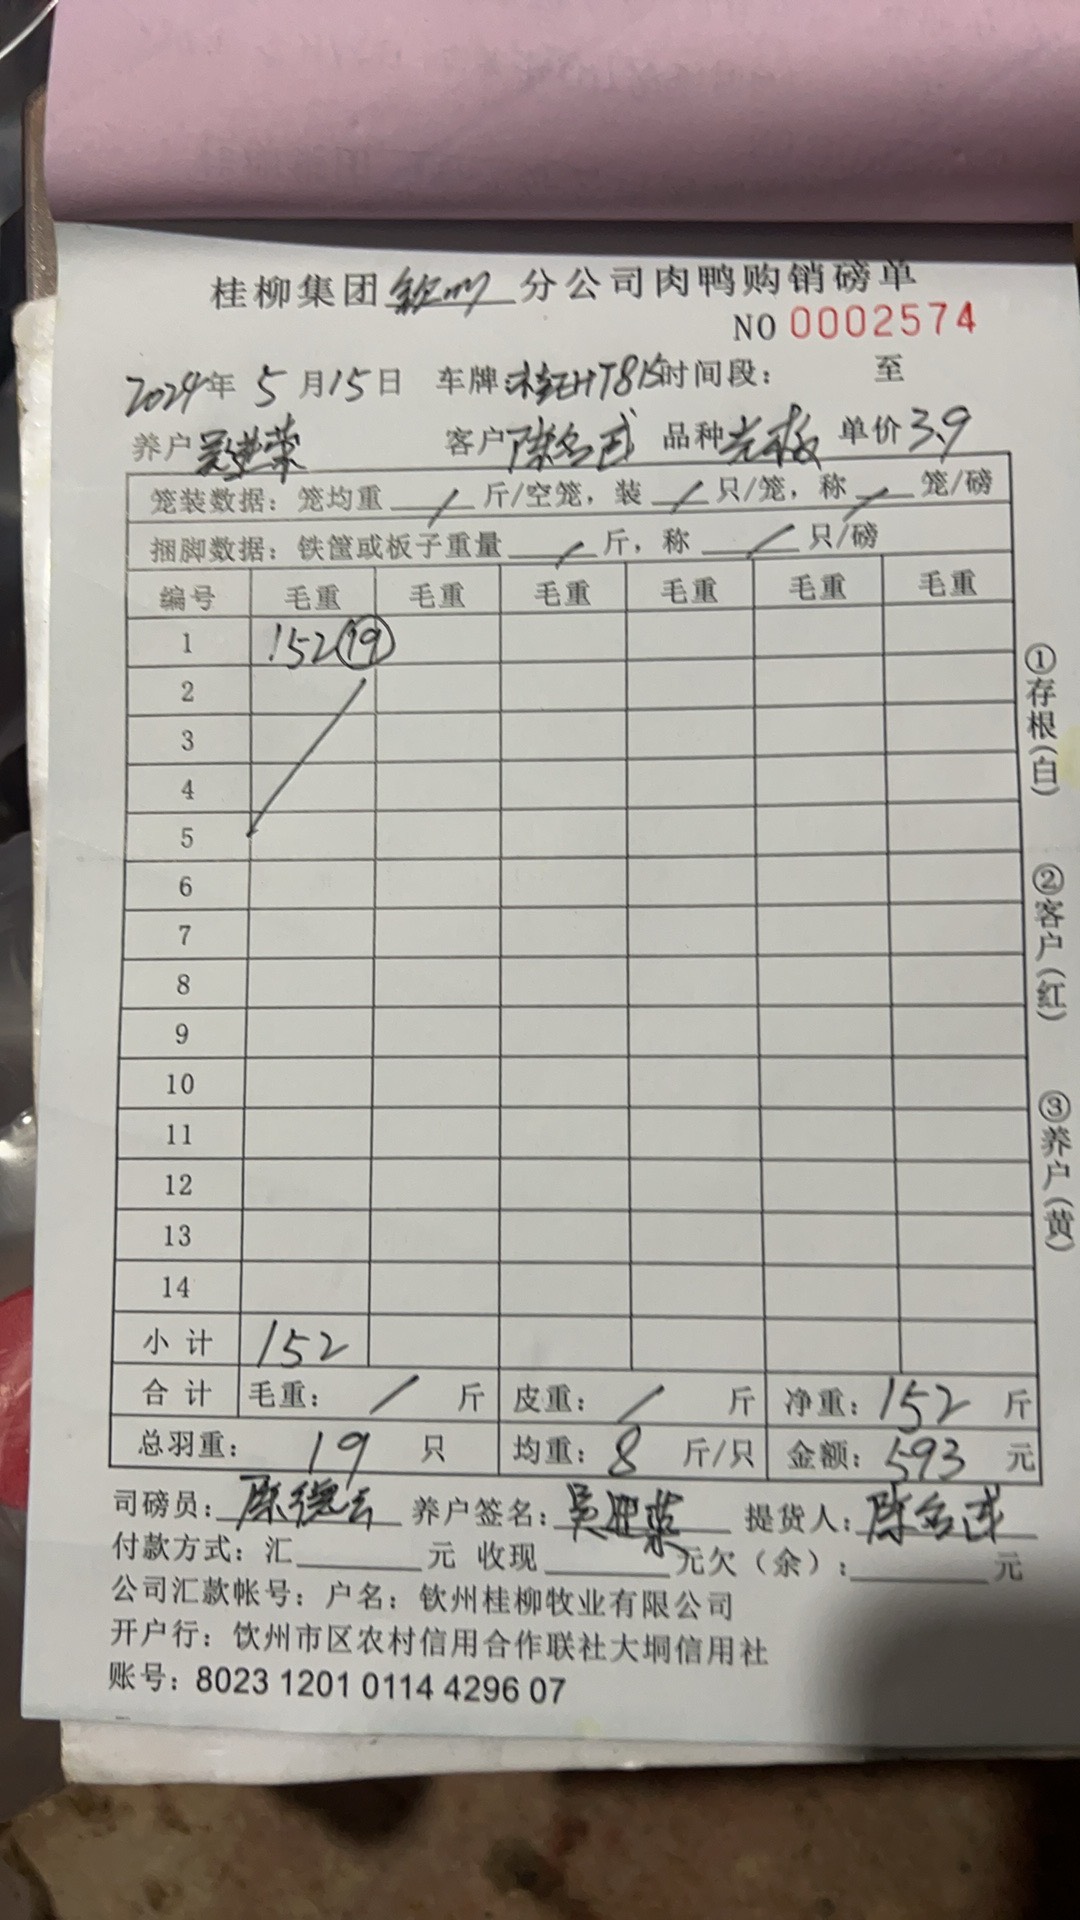 桂柳集团钦州分公司肉鸭购销磅单
NO 0002574
2024年5月15日 车牌:桂EHT815时间段: 至
养户 客户陈名武 品种光板 单价3.9
笼装数据:笼均重 / 斤/空笼,装 / 只/笼,称 / 笼/磅
捆脚数据:铁筐或板子重量 / 斤,称 / 只/磅
编号 毛重 毛重 毛重 毛重 毛重 毛重
1 152 19
2
3
4
5
6
7
8
9
10
11
12
13
14
小计 152
合计 毛重: / 斤 皮重: / 斤 净重:152 斤
总羽重: 19 只 均重:8 斤/只 金额:593 元
司磅员:陈德云 养户签名: 提货人:陈名武
付款方式:汇 元 收现 元欠(余): 元
公司汇款帐号:户名:钦州桂柳牧业有限公司
开户行:钦州市区农村信用合作联社大垌信用社
账号:8023 1201 0114 4296 07
①存根(白)
②客户(红)
③养户(黄)